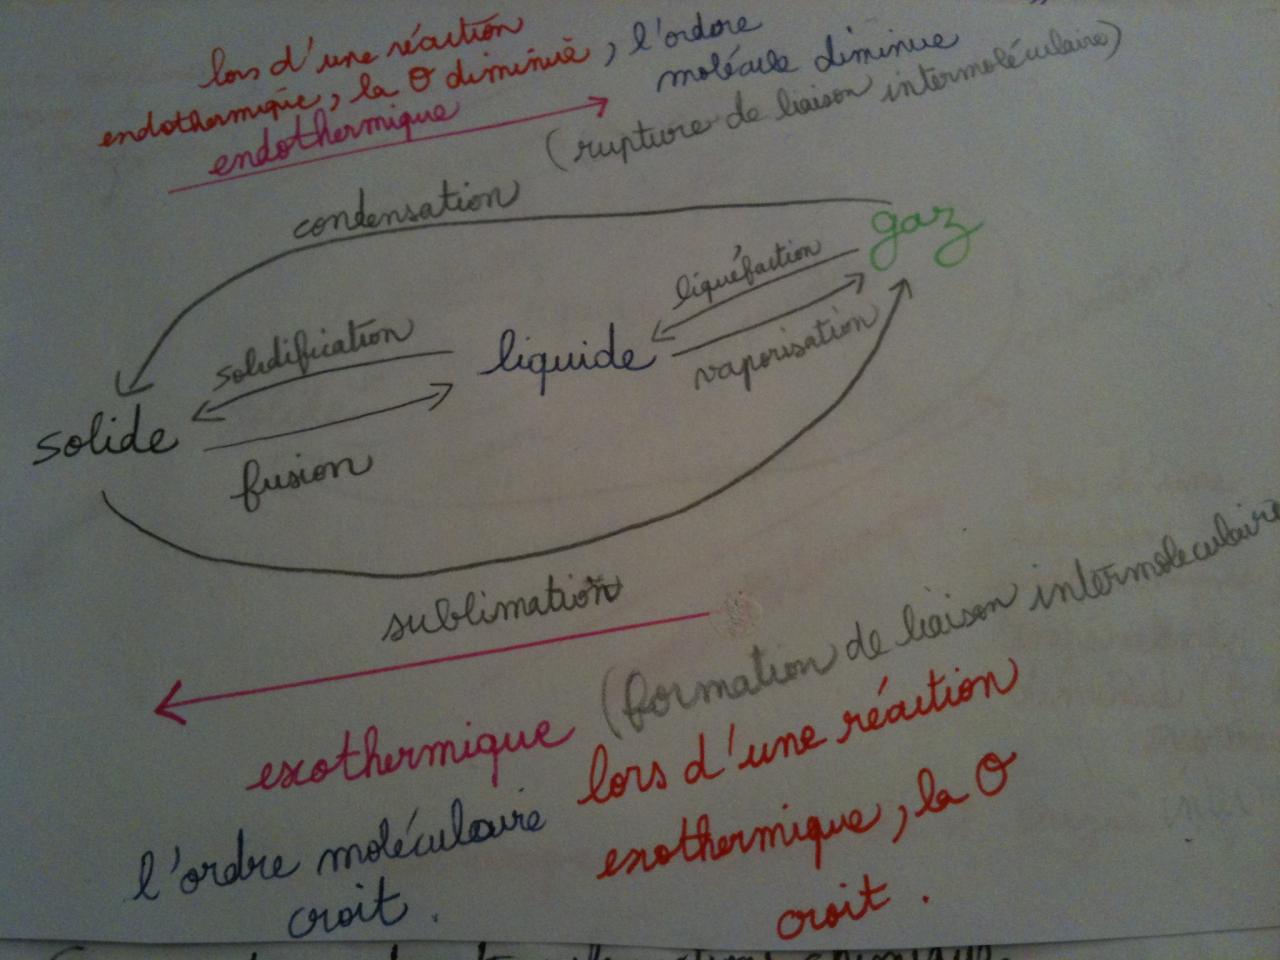 lors d'une réaction
endothermique, la θ diminue, l'ordre
molécule diminue
endothermique
(rupture de liaison intermoléculaire)
condensation
gaz
liquéfaction
solidification
liquide
vaporisation
solide
fusion
sublimation
(formation de liaison intermoleculaire
exothermique
lors d'une réaction
l'ordre moléculaire
exothermique, la θ
croit.
croit.